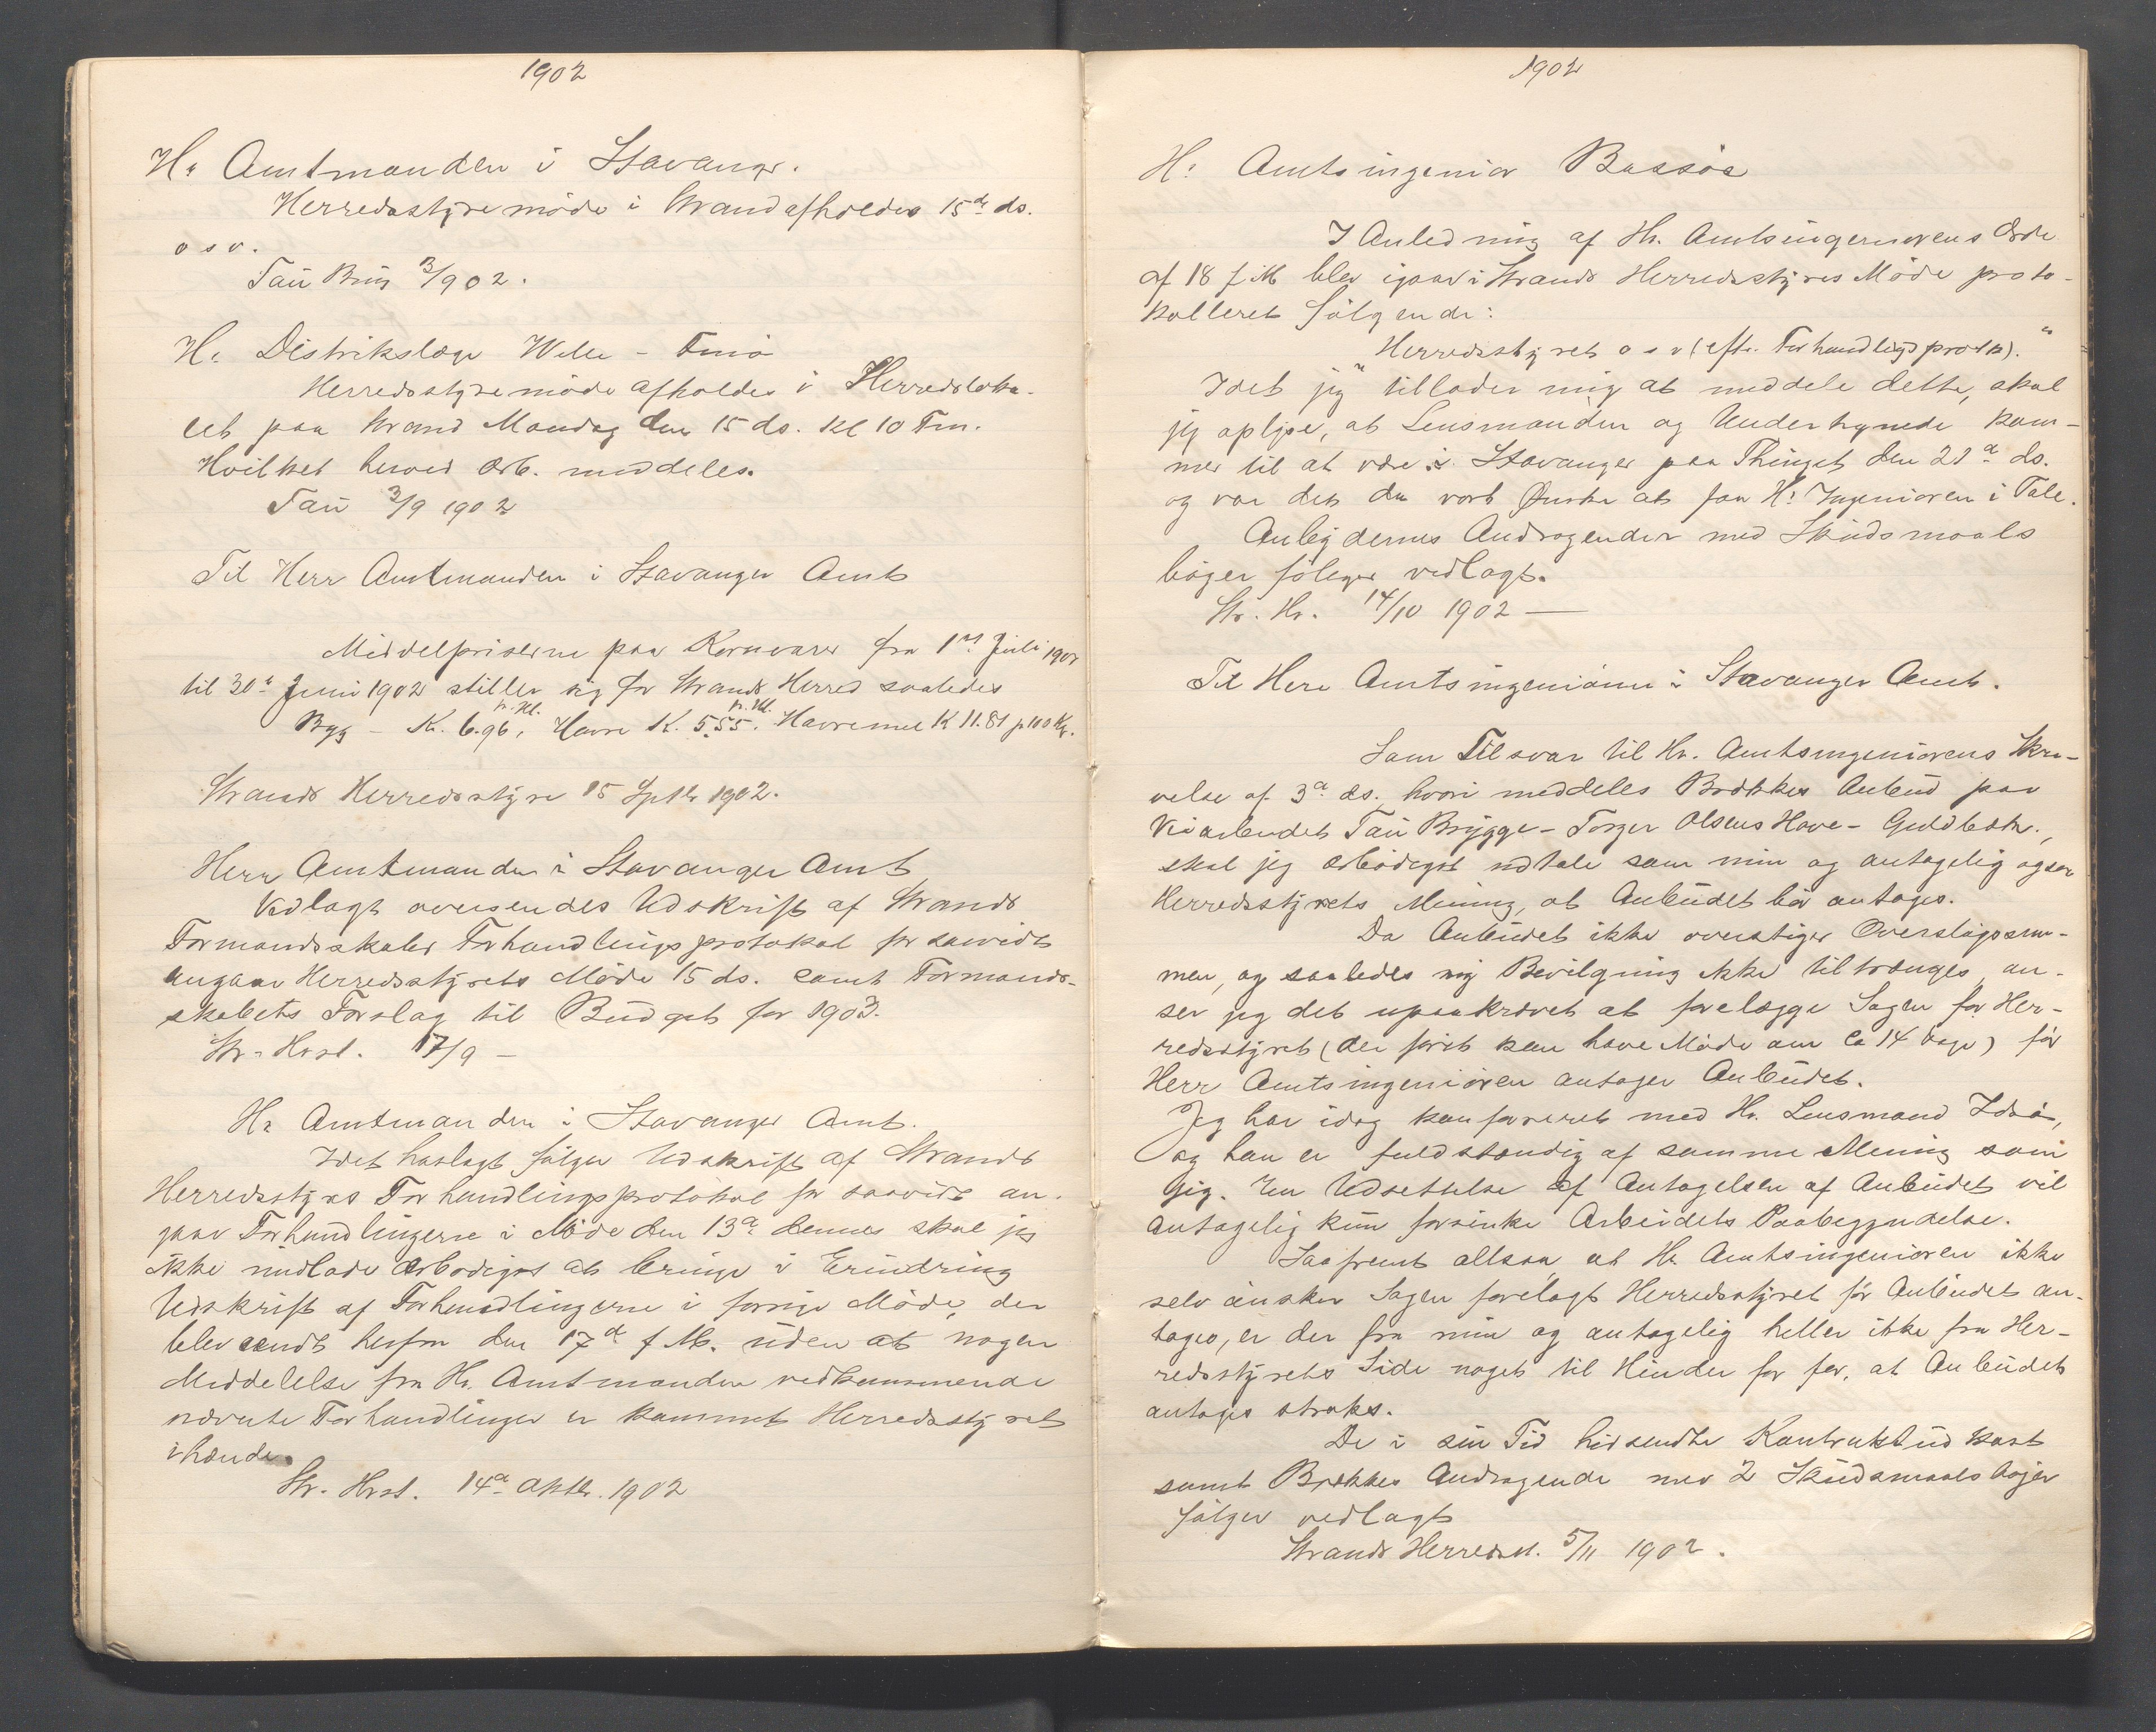 1902
Hr Amtmanden i Stavanger.
Herredsstyremöde i Strand afholdes 15de ds.
o s v.
Tau Brug 3/9 02.
Hr. Distriktslæge Wille - Finö
Herredsstyremöde afholdes i Herredsloka-
let paa Strand Mandag den 15 ds. Kl 10 Fm.
Hvilket herved ærb. meddeles.
Tau 3/9 1902
Til Herr Amtmanden i Stavanger Amt
Middelpriserne paa Kornvarer fra 1ste Juli 1901
til 30te Juni 1902 stiller sig for Strands Herred saaledes
Byg - K. 6.96 p. Hl., Havre K. 5.55 p. Hl. Havremel K 11.81 p 100 Kg.
Strands Herredsstyre 15 Septbr 1902.
Herr Amtmanden i Stavanger Amt
Vedlagt oversendes Udskrift af Strands
Formandsskabs Forhandlingsprotokol for saavidt
angaar Herredsstyrets Möde 15 ds. samt Formands-
skabets Forslag til Budget for 1903.
Str. Hrst. 17/9 -
Hr Amtmanden i Stavanger Amt.
Idet hoslagt følger Udskrift af Strands
Herredsstyres Forhandlingsprotokol for saavidt an-
gaar Forhandlingerne i Möde den 13de dennes skal jeg
ikke undlade ærbødigst at bringe i Erindring
Udskrift af Forhandlingerne i forrige Möde, der
blev sendt herfra den 17de f. M. uden at nogen
Meddelelse fra Hr. Amtmanden vedkommende
nævnte Forhandlinger er kommet Herredsstyret
ihænde.
Str. Hrst. 14de Oktbr. 1902
1902
Hr. Amtsingeniör Bassöe
I Anledning af Hr. Amtsingeniörens Ærede
af 18 f M blev igaar i Strands Herredsstyres Möde proto-
kolleret fölgende:
"Herredsstyret o s v (eftr. Forhandligsprotk)."
Idet jeg tillader mig at meddele dette, skal
jeg oplyse, at Lensmanden og Undertegnede kom-
mer til at være i Stavanger paa Thinget den 21de ds.
og var det da vort Ønske at faa Hr. Ingeniören i Tale.
Anbydernes Andragender med Skudsmaals
böger fölger vedlagt.
Str. Hr. 14/10 1902 —
Til Herr Amtsingeniören i Stavanger Amt.
Som Tilsvar til Hr. Amtsingeniörens Skri-
velse af 3de ds., hvori meddeles Brækkes Anbud paa
Veiarbeidet Tau Brygge - Torger Olsens Have - Guldbæk.,
skal jeg ærbödigst udtale som min og antagelig ogsaa
Herredsstyrets Mening, at Anbudet bör antages.
Da Anbudet ikke overstiger Overslagssum-
men, og saaledes ny Bevilgning ikke tiltrænges, an-
ser jeg det upaakrævet at forelægge Sagen for Her-
redsstyret (der förit kan have Möde om Ca 14 Dage) för
Herr Amtsingeniören antager Anbudet.
Jeg har idag konfereret med Hr. Lensmand Idsö,
og han er fuldstændig af samme Mening som
jeg. En Udsættelse af Antagelsen af Anbudet vil
antagelig kun forsinke Arbeidets Paabegyndelse.
Saafremt altsaa, at Hr. Amtsingeniören ikke
selv önsker Sagen forelagt Herredsstyret för Anbudet an-
tages, er der fra min og antagelig heller ikke fra Her-
redsstyrets Side noget til Hinder for for, at Anbudet
antages straks.
De i sin Tid hidsendte Kontraktudkast
samt Brækkes Andragende med 2 Skudsmaalsböger
fölger vedlagt
Strands Herredsst. 5/11 1902.